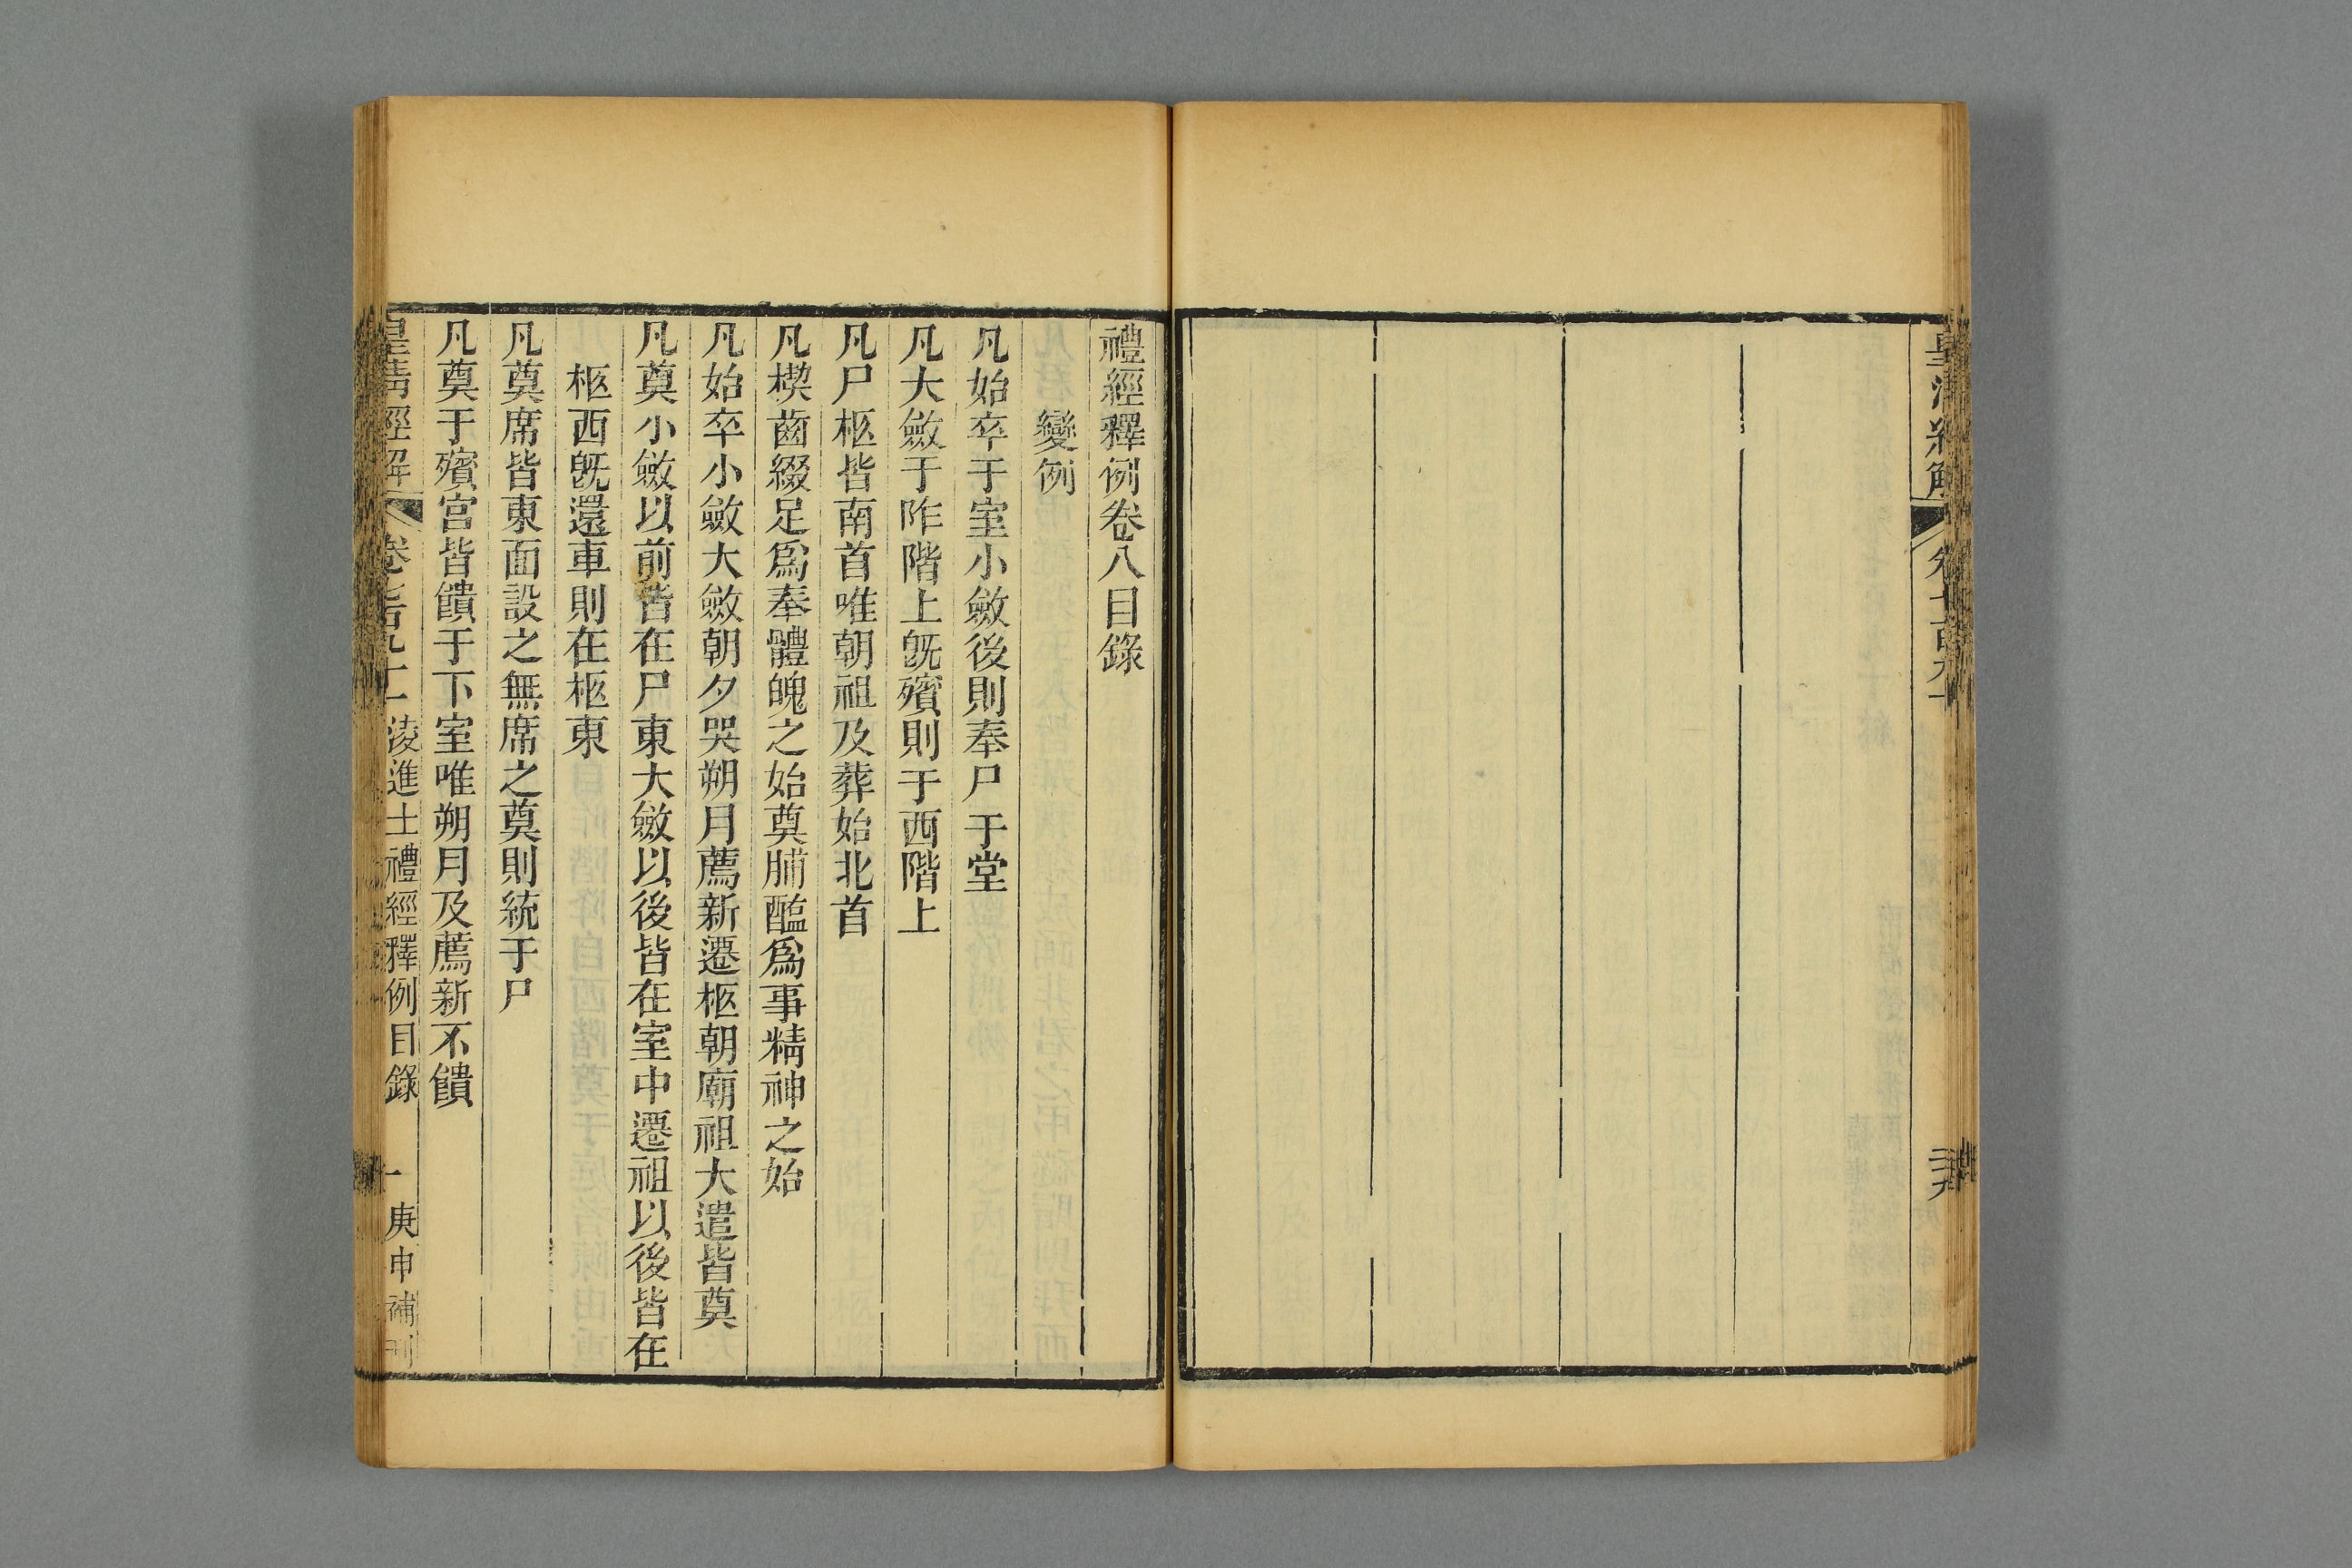 禮經釋例卷八目錄
變例
凡始卒于室小斂後則奉尸于堂
凡大斂于阼階上既殯則于西階上
凡尸柩皆南首唯朝祖及葬始北首
凡楔齒綴足爲奉體魄之始奠脯醢爲事精神之始
凡始卒小斂大斂朝夕哭朔月薦新遷柩朝廟祖大遣皆奠
凡奠小斂以前皆在尸東大斂以後皆在室中遷祖以後皆在
柩西既還車則在柩東
凡奠席皆東面設之無席之奠則統于尸
凡奠于殯宮皆饋于下室唯朔月及薦新不饋
皇清經解 卷 淩進士禮經釋例目錄 一 庚申補刊